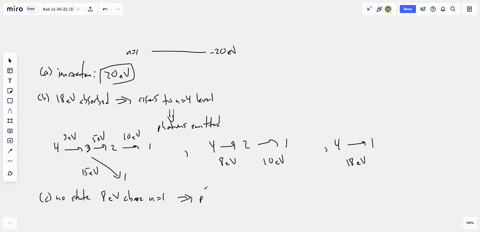 miro Free Ask 11-30-21 (3)
n=1 -20eV
(a) ionization: 20eV
(b) 18eV absorbed ⇒ rises to n=4 level
⇓
photons emitted
3eV 5eV 10eV
4 → 3 → 2 → 1 , 4 → 2 → 1 , 4 → 1
8eV 10eV 18eV
15eV 1
(c) no state 8eV above n=1 ⇒ p
100%